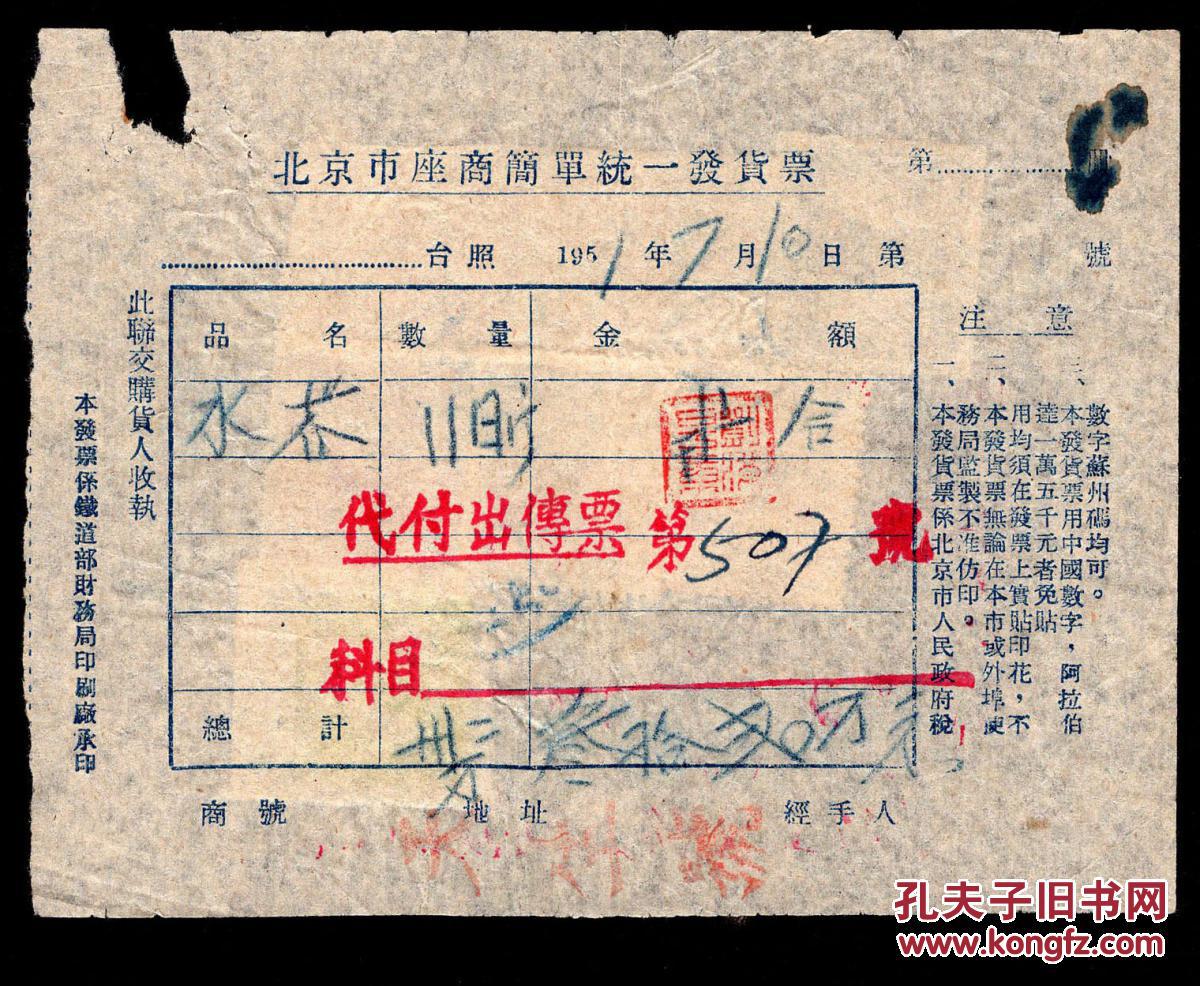 北京市座商簡單統一發貨票
第 冊
台照 1951年7月10日 第 號
品名 數量 金額
水
代付出傳票第507號
科目
總計
叁拾 万元
商號 地址 經手人
此聯交購貨人收執
本發票係鐵道部財務局印刷廠承印
注意
一、本發貨票係北京市人民政府稅務局監製不准仿印。
二、本發貨票無論在本市或外埠使用均須在發票上實貼印花，不達一萬五千元者免貼
三、本發貨票用中國數字，阿拉伯數字蘇州碼均可。
孔夫子旧书网
www.kongfz.com